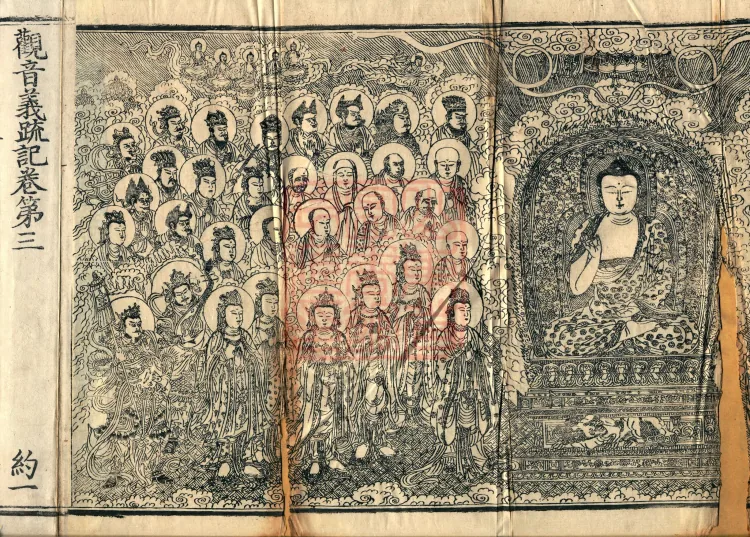 觀音義疏記卷第三
約一